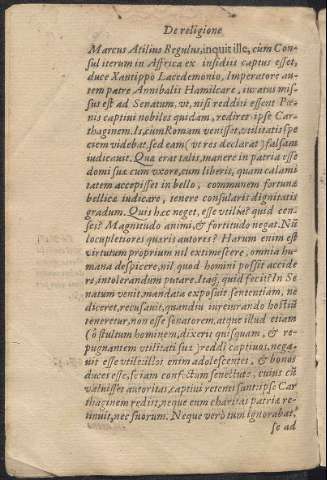 De religione
Marcus Atilius Regulus, inquit ille, cùm Con-
sul iterum in Affrica ex insidiis captus esset,
duce Xantippo Lacedemonio, Imperatore au-
tem patre Annibalis Hamilcare, iuratus mis-
sus est ad Senatum, vt, nisi redditi essent Poe-
nis captiui nobiles quidam, rediret ipse Car-
thaginem. Is, cùm Romam venisset, vtilitatis spe
ciem videbat, sed eam (vt res declarat) falsam
iudicauit. Qua erat talis, manere in patria esse
domi suæ cum vxore, cum liberis, quam calami
tatem accepisset in bello, communem fortunæ
bellicæ iudicare, tenere consularis dignitatis
gradum. Quis hæc neget, esse vtilia? quid cen-
seis? Magnitudo animi, & fortitudo negat. Nū
locupletiores quæris autores? Harum enim est
virtutum proprium nil extimescere, omnia hu-
mana despicere, nil quod homini possit accide
re, intolerandum putare. Itaq́; quid fecit? In Se
natum venit, mandata exposuit, sententiam, ne
diceret, recusauit, quandiu iureiurando hostiū
teneretur, non esse senatorem, atque illud etiam
(ô stultum hominem, dixerit quispiam, & re-
pugnantem vtilitati suæ) reddi captiuos, nega-
uit esse vtile: illos enim adolescentes, & bonos
duces esse, se iam confectum senectute, cuius cū
valuisset autoritas, captiui retenti sunt: ipse Car
thaginem rediit, neque eum charitas patriæ re-
tinuit, nec suorum. Neque verò tum ignorabat,
se ad